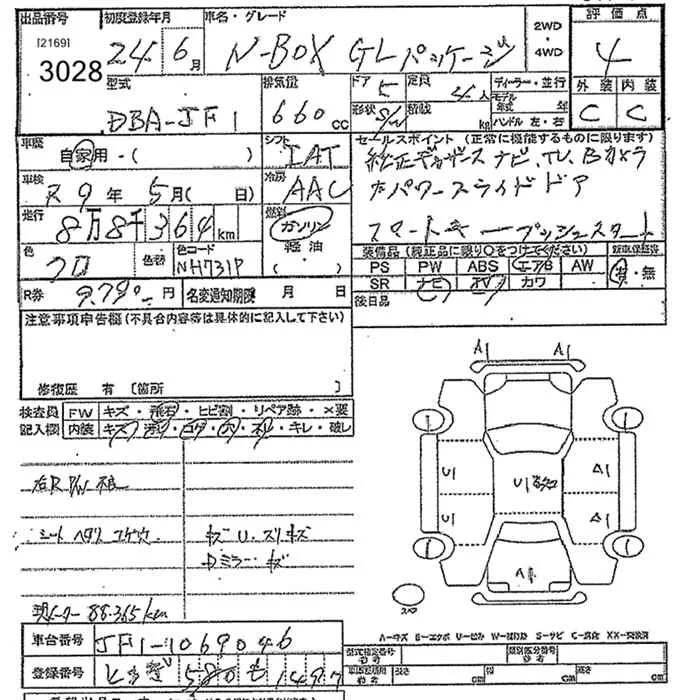 出品番号 初度登録年月 車名・グレード 2WD・4WD 評価点
[2169]
3028
24年 6月 N-BOX GLパッケージ 4
型式 排気量 ドア 定員 ディーラー・並行 外装 内装
DBA-JF1 660cc 5 4人 モデル年式 年 C C
形状 S/W 積載 kg ハンドル 左・右
車歴 自家用・( ) シフト IAT セールスポイント(正常に機能するものに限ります)
車検 R9年 5月( 日) 冷房 AAC 純正ギャザズナビ.TV.Bカメラ
走行 8万8千364km 燃料 ガソリン 軽油 ( ) 左パワースライドドア
スマートキープッシュスタート
色 クロ 色替 色コード NH731P 装備品(純正品に限り○をつけてください) 新車保証書
PS PW ABS エアB AW 有・無
R券 9.790円 名変通知期限 月 日 SR ナビ TV カワ
後日品
注意事項申告欄(不具合内容等は具体的に記入して下さい)
修復歴 有 〔箇所 〕
検査員 FW キズ・飛石・ヒビ割・リペア跡・×要
記入欄 内装 キズ・汚レ・コゲ・穴・スレ・キレ・破レ
シート ヘタリ コゲ穴 キズ U.スリキズ
Dミラー・キズ
現メーター 88.365km
A1 A1
U1 U1 A1
U1 A1
スペア
A-キズ E-エクボ U-凹み W-補修跡 S-サビ C-腐食 XX-交換済
車台番号 JF1-1069046 型式指定番号 参考 類別区分番号 参考
登録番号 とちぎ580も1497 長さ cm 幅 cm 高さ cm